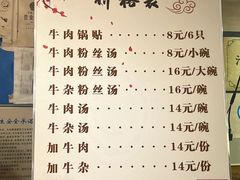 价格表
牛肉锅贴 ······ 8元/6只
牛肉粉丝汤 ···· 8元/小碗
牛肉粉丝汤 ···· 16元/大碗
牛杂粉丝汤 ···· 16元/碗
牛肉汤 ······· 14元/碗
牛杂汤 ······· 14元/碗
加牛肉 ······· 14元/份
加牛杂 ······· 14元/份